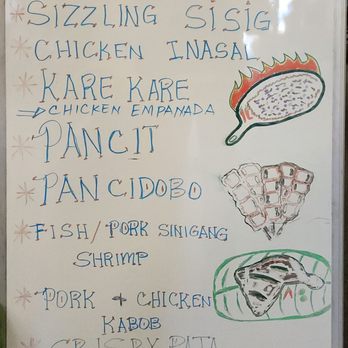 * SIZZLING SISIG
* CHICKEN INASAL
* KARE KARE
⇒ CHICKEN EMPANADA
* PANCIT
* PANCIDOBO
* FISH/PORK SINIGANG
SHRIMP
* PORK + CHICKEN
KABOB
* CRISPY PATA